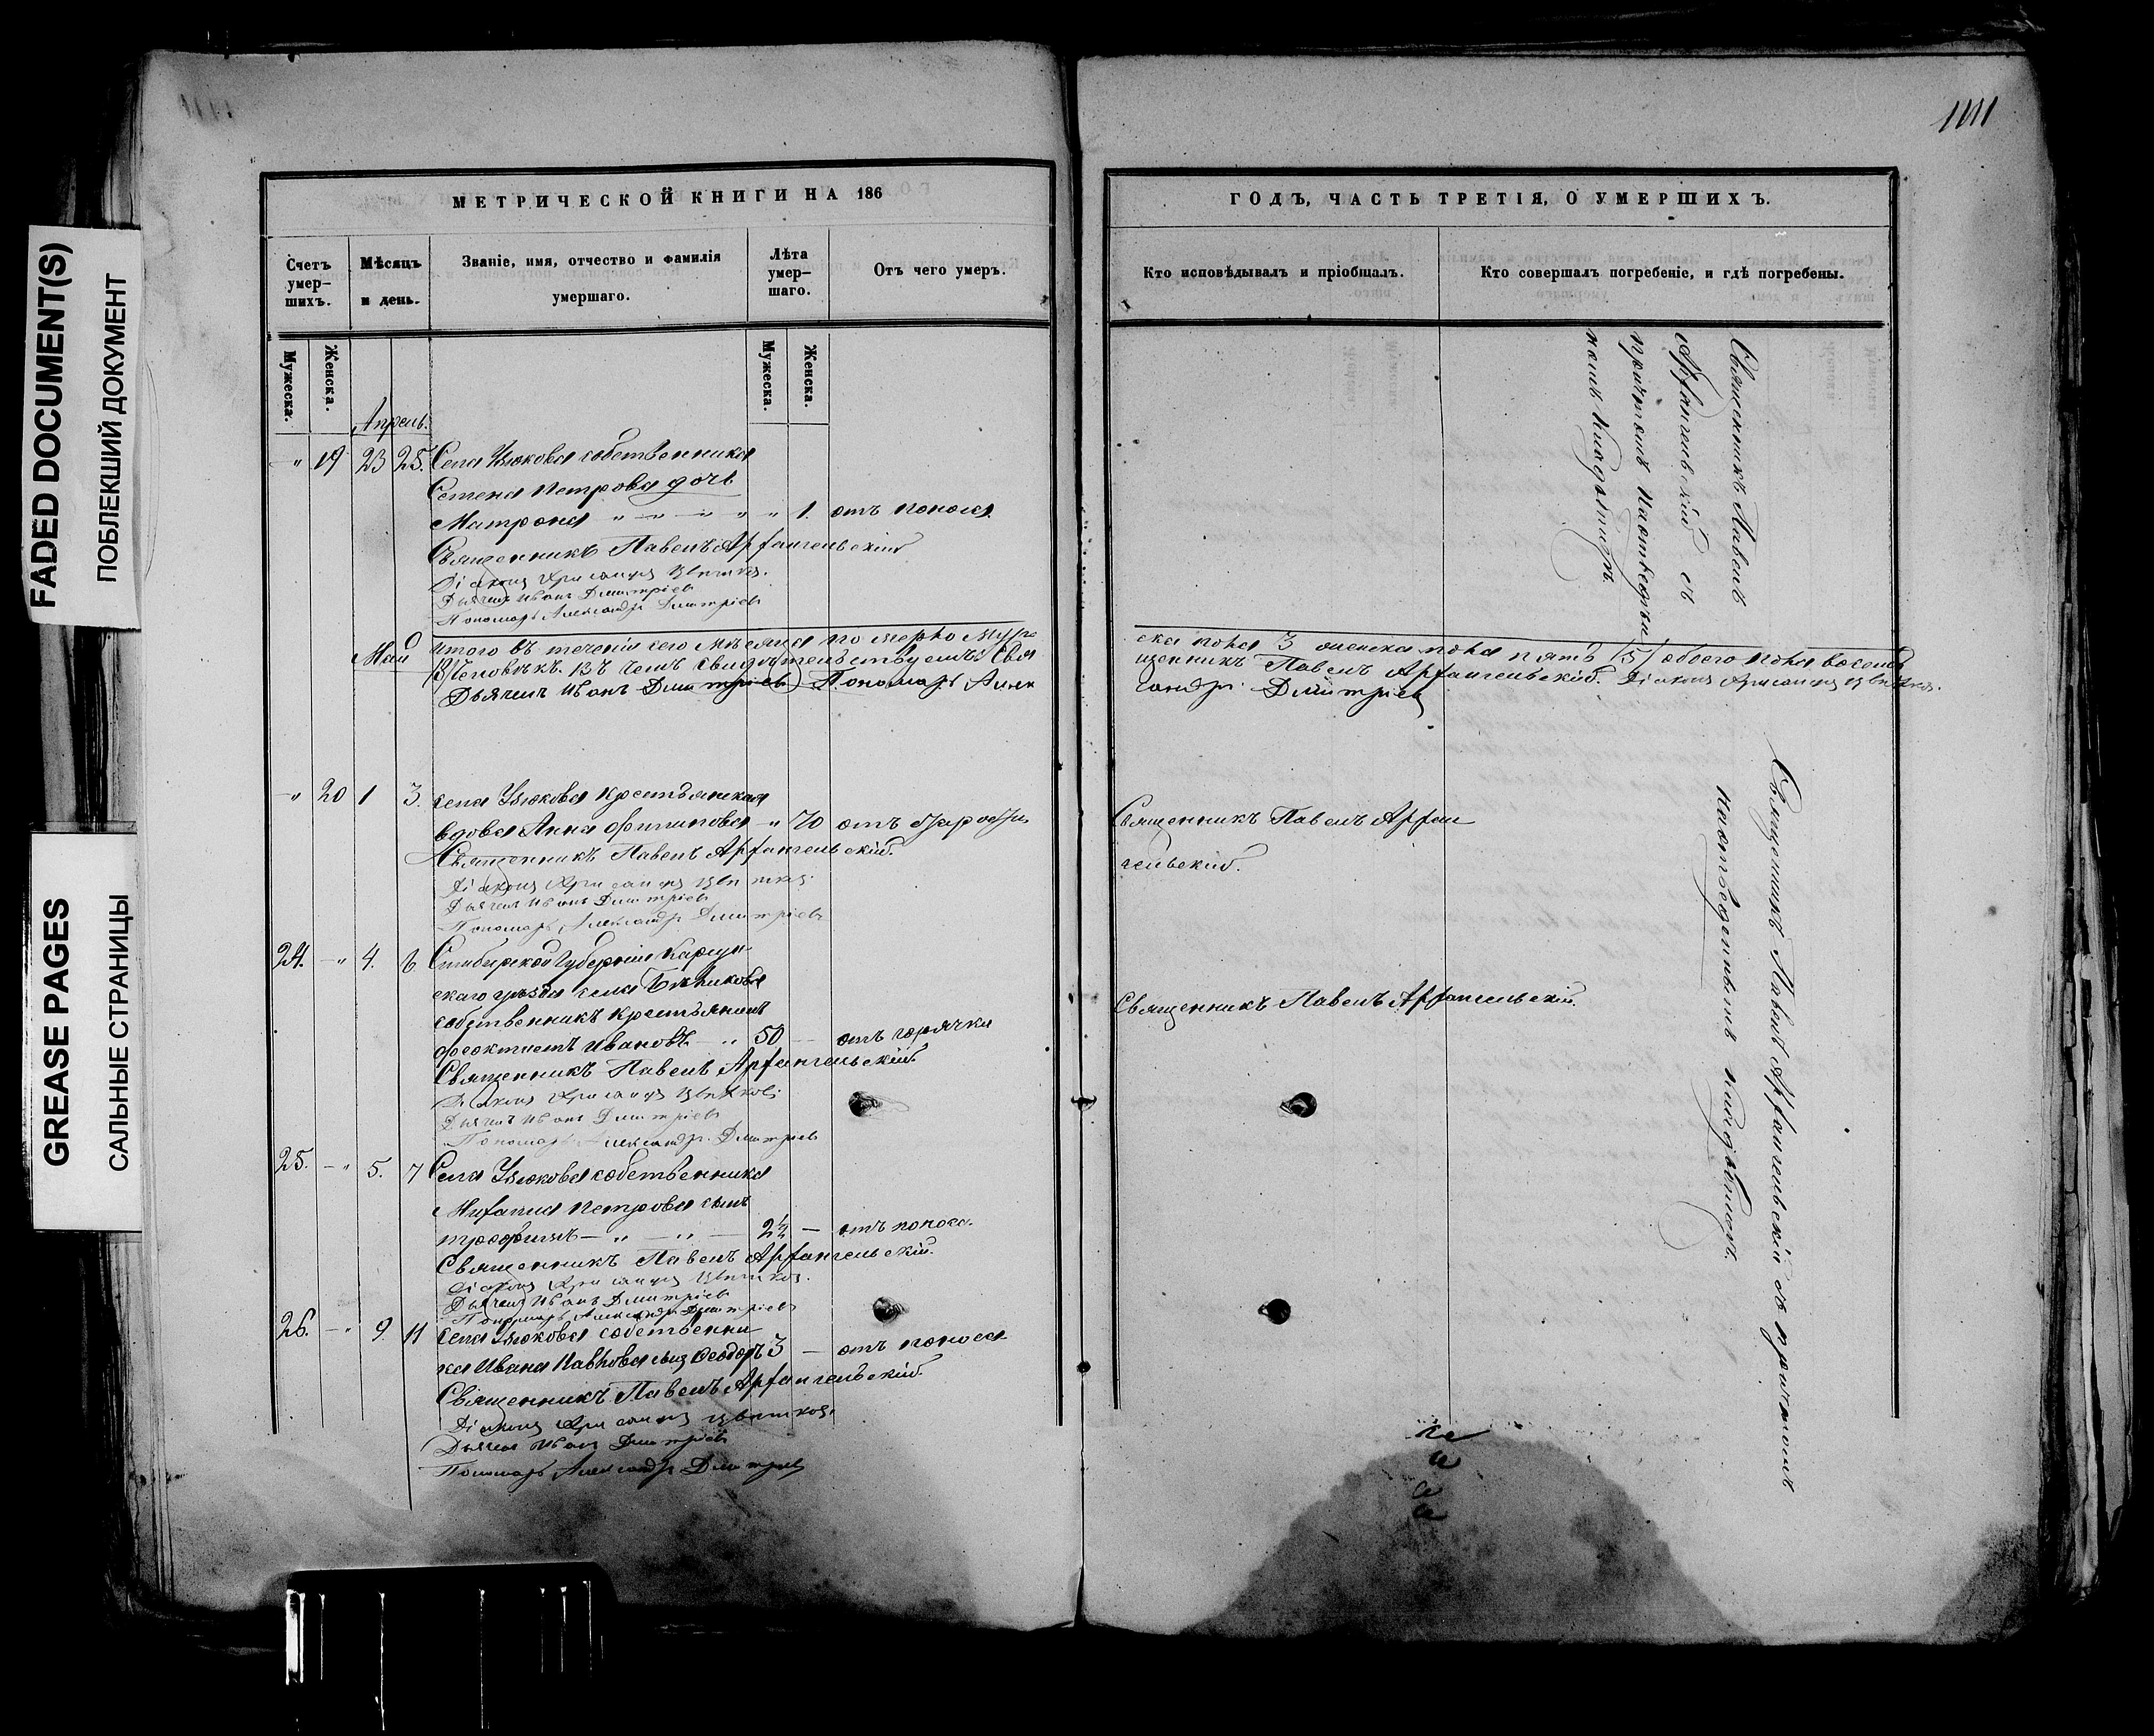 FADED DOCUMENT(S)
ПОБЛЕКШИЙ ДОКУМЕНТ
GREASE PAGES
САЛЬНЫЕ СТРАНИЦЫ
МЕТРИЧЕСКОЙ КНИГИ НА 186
Счетъ умер-шихъ.
Мѣсяцъ и день.
Званіе, имя, отчество и фамилія умершаго.
Лѣта умер-шаго.
Отъ чего умеръ.
Мужеска. Женска. Мужеска. Женска.
Апрель.
" 19 23 25. Села Узюкова собственника
Семена Петрова дочь
Матрона " — " — " " " 1. отъ поноса.
Священникъ Павелъ Архангельскій
Діаконъ Хрисанфъ Цвѣтков.
Дьячекъ Иванъ Дмитріевъ
Пономарь Александръ Дмитріевъ
Май
Итого въ теченіи сего мѣсяца померло муже
Человѣкъ. Въ чемъ свидѣтельствуемъ: Свя
Дьячекъ Иванъ Дмитріевъ Пономарь Алек
— " 20 1 3. села Узюкова крестьянская
вдова Анна Филипова — " 70 отъ старости
Священникъ Павелъ Архангельскій.
Діаконъ Хрисанфъ Цвѣтков.
Дьячекъ Иванъ Дмитріевъ
Пономарь Александръ Дмитріевъ
24. — " 4. 6 Симбирской Губерніи Карсун-
скаго уѣзда села
собственникъ крестьянинъ
Феоктистъ Ивановъ — " 50 — отъ горячки
Священникъ Павелъ Архангельскій.
Діаконъ Хрисанфъ Цвѣтков.
Дьячекъ Иванъ Дмитріевъ
Пономарь Александръ Дмитріевъ
25. — " 5. 7 Села Узюкова собственника
Михаила Петрова сынъ
Трофимъ — " — " — 2½ — отъ поноса.
Священникъ Павелъ Архангельскій.
Діаконъ Хрисанфъ Цвѣтков.
Дьячекъ Иванъ Дмитріевъ
Пономарь Александръ Дмитріевъ
26. — " 9. 11 села Узюкова собственни-
ка Ивана Павлова сынъ Феодоръ 3 — отъ поноса
Священникъ Павелъ Архангельскій
Діаконъ Хрисанфъ Цвѣтков.
Дьячекъ Иванъ Дмитріевъ
Пономарь Александръ Дмитріевъ
1111
ГОДЪ, ЧАСТЬ ТРЕТІЯ, О УМЕРШИХЪ.
Кто исповѣдывалъ и пріобщалъ.
Кто совершалъ погребеніе, и гдѣ погребены.
Священникъ Павелъ
Архангельскій съ
причтомъ на отведен
номъ кладбищѣ.
ска пола 3 женска пола пять (5) обоего пола восемь
щенникъ Павелъ Архангельскій. Діаконъ Хрисанфъ Цвѣтков.
сандръ Дмитріевъ
Священникъ Павелъ Архан
гельскій.
Священникъ Павелъ Архангельскій.
Священникъ Павелъ Архангельскій съ причтомъ
на отведенномъ кладбищѣ.